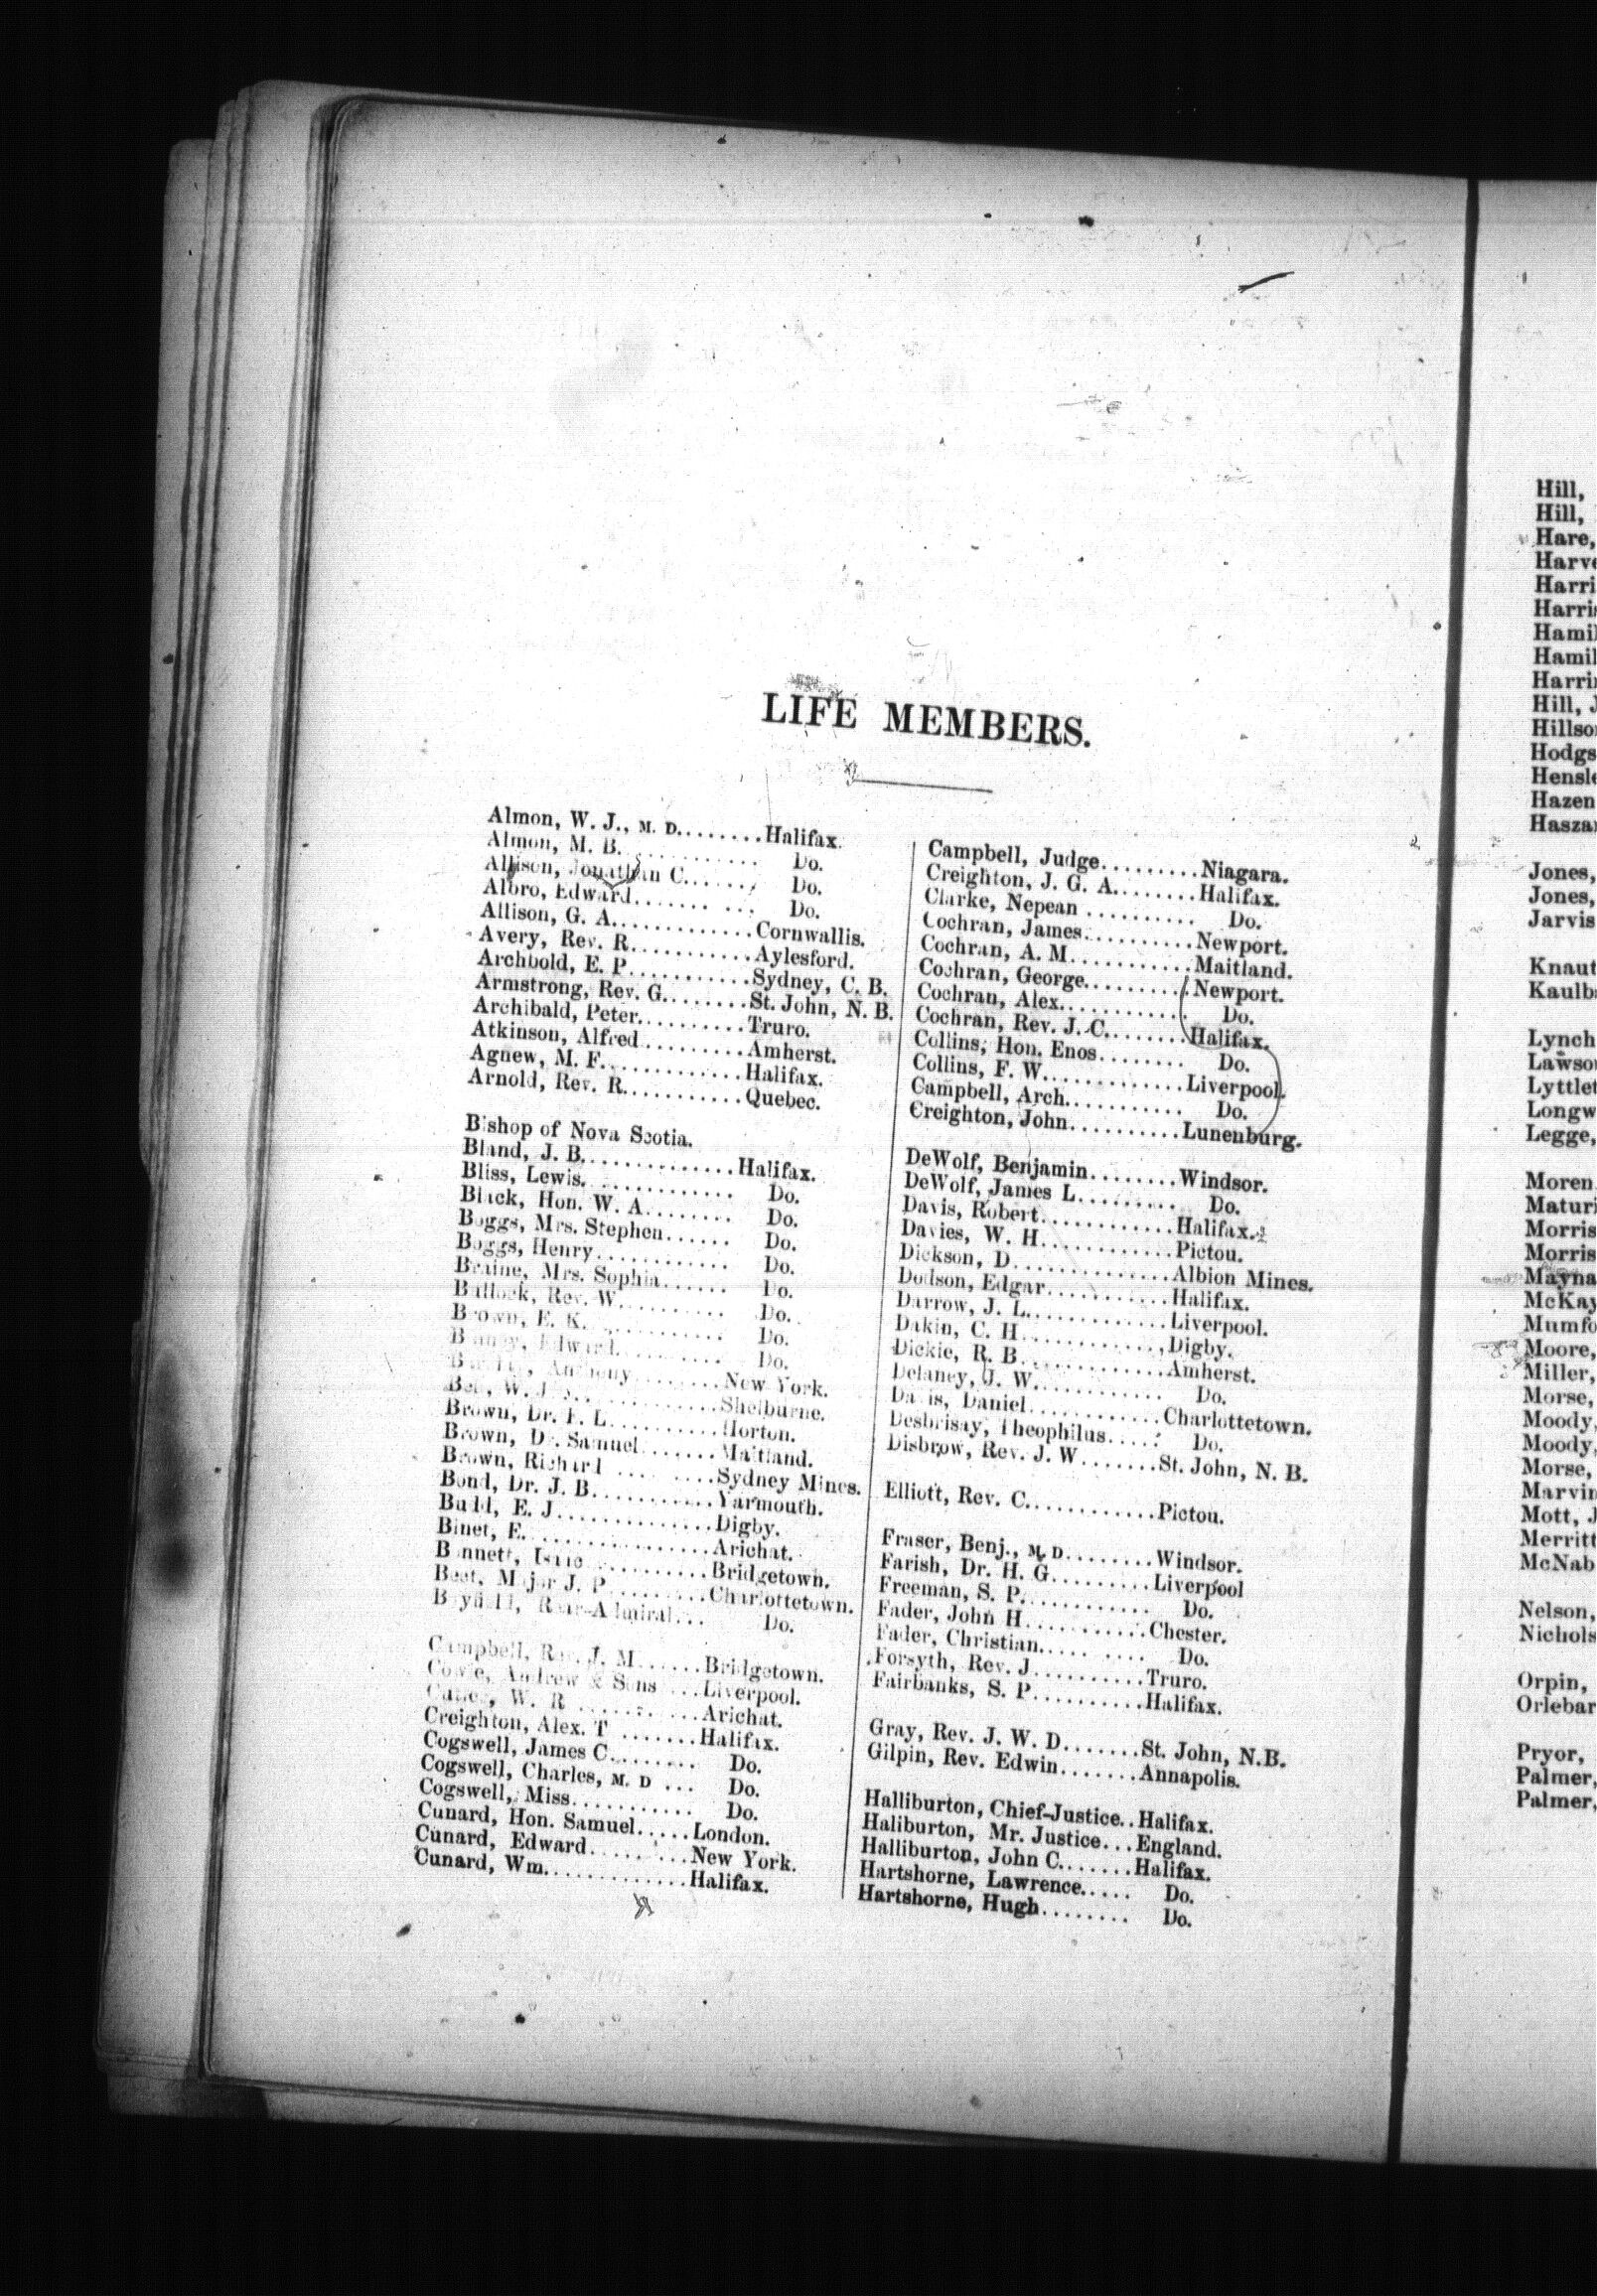 LIFE MEMBERS.
Almon, W. J., M. D........Halifax.
Almon, M. B............. Do.
Allison, Jonathan C...... Do.
Albro, Edward....... ... Do.
Allison, G. A.............Cornwallis.
Avery, Rev. R...........Aylesford.
Archbold, E. P...........Sydney, C. B.
Armstrong, Rev. G........St. John, N. B.
Archibald, Peter..........Truro.
Atkinson, Alfred.........Amherst.
Agnew, M. F.............Halifax.
Arnold, Rev. R...........Quebec.
Bishop of Nova Scotia.
Bland, J. B..............Halifax.
Bliss, Lewis............. Do.
Black, Hon. W. A........ Do.
Boggs, Mrs. Stephen...... Do.
Boggs, Henry............ Do.
Braine, Mrs. Sophia...... Do.
Bullock, Rev. W.......... Do.
Brown, E. K. ........... Do.
Edward.......... Do.
Anthony........New York.
W. ...........Shelburne.
Brown, Dr. E. L..........Horton.
Brown, Dr. Samuel.......Maitland.
Brown, Richard .... ....Sydney Mines.
Bond, Dr. J. B...........Yarmouth.
Budd, E. J..............Digby.
Binet, E.................Arichat.
Bennett, Isaac...........Bridgetown.
Beet, Major J. P.........Charlottetown.
Rear-Admiral... Do.
Campbell, Rev. J. M......Bridgetown.
Cowie, Andrew & Sons ...Liverpool.
W. R ...... ...Arichat.
Creighton, Alex. T .......Halifax.
Cogswell, James C........ Do.
Cogswell, Charles, M. D ... Do.
Cogswell, Miss........... Do.
Cunard, Hon. Samuel.....London.
Cunard, Edward..... ...New York.
Cunard, Wm.............Halifax.
Campbell, Judge.........Niagara.
Creighton, J. G. A........Halifax.
Clarke, Nepean .......... Do.
Cochran, James..........Newport.
Cochran, A. M...........Maitland.
Cochran, George..........Newport.
Cochran, Alex............ Do.
Cochran, Rev. J. C........Halifax.
Collins, Hon. Enos........ Do.
Collins, F. W.............Liverpool.
Campbell, Arch........... Do.
Creighton, John..........Lunenburg.
DeWolf, Benjamin........Windsor.
DeWolf, James L......... Do.
Davis, Robert............Halifax.
Davies, W. H............Pictou.
Dickson, D..............Albion Mines.
Dodson, Edgar...........Halifax.
Darrow, J. L.............Liverpool.
Dakin, C. H.............Digby.
Dickie, R. B.............Amherst.
Delaney, J. W............ Do.
Davis, Daniel............Charlottetown.
Desbrisay, Theophilus..... Do.
Disbrow, Rev. J. W.......St. John, N. B.
Elliott, Rev. C............Pictou.
Fraser, Benj., M. D........Windsor.
Farish, Dr. H. G.........Liverpool
Freeman, S. P............ Do.
Fader, John H...........Chester.
Fader, Christian..... .... Do.
Forsyth, Rev. J..........Truro.
Fairbanks, S. P..........Halifax.
Gray, Rev. J. W. D.......St. John, N.B.
Gilpin, Rev. Edwin.......Annapolis.
Halliburton, Chief-Justice..Halifax.
Haliburton, Mr. Justice...England.
Halliburton, John C.......Halifax.
Hartshorne, Lawrence..... Do.
Hartshorne, Hugh........ Do.
Hill,
Hill,
Hare,
Harve
Harri
Harris
Hamil
Hamil
Harri
Hill, J
Hillso
Hodgs
Hensle
Hazen
Hasza
Jones,
Jones,
Jarvis
Knaut
Kaulb
Lynch
Lawso
Lyttlet
Longw
Legge,
Moren
Maturi
Morris
Morris
Mayna
McKay
Mumfo
Moore,
Miller,
Morse,
Moody,
Moody,
Morse,
Marvin
Mott, J
Merritt
McNab
Nelson,
Nichols
Orpin,
Orlebar
Pryor,
Palmer,
Palmer,